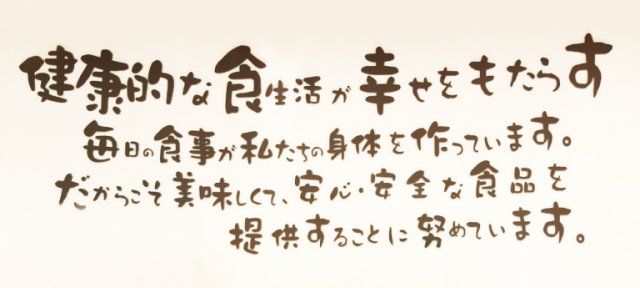 健康的な食生活が幸せをもたらす
毎日の食事が私たちの身体を作っています。
だからこそ美味しくて、安心・安全な食品を
提供することに努めています。